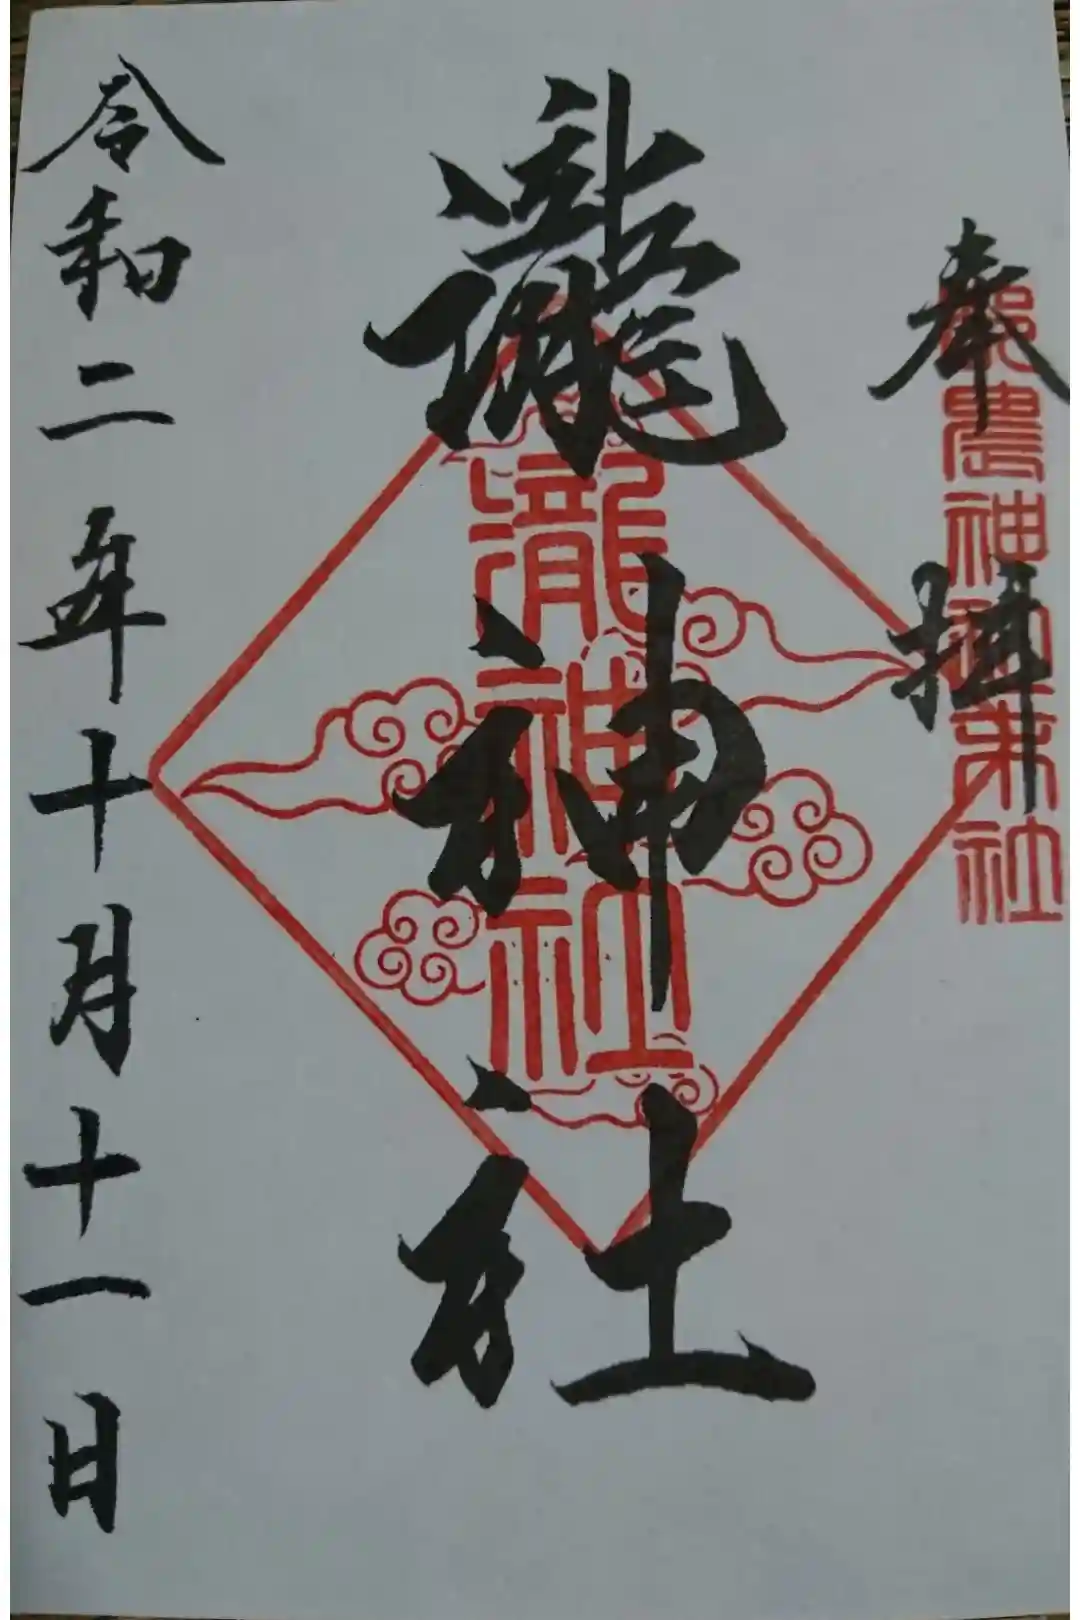 奉拝
都農神社末社
瀧神社
瀧神社
令和二年十月十一日